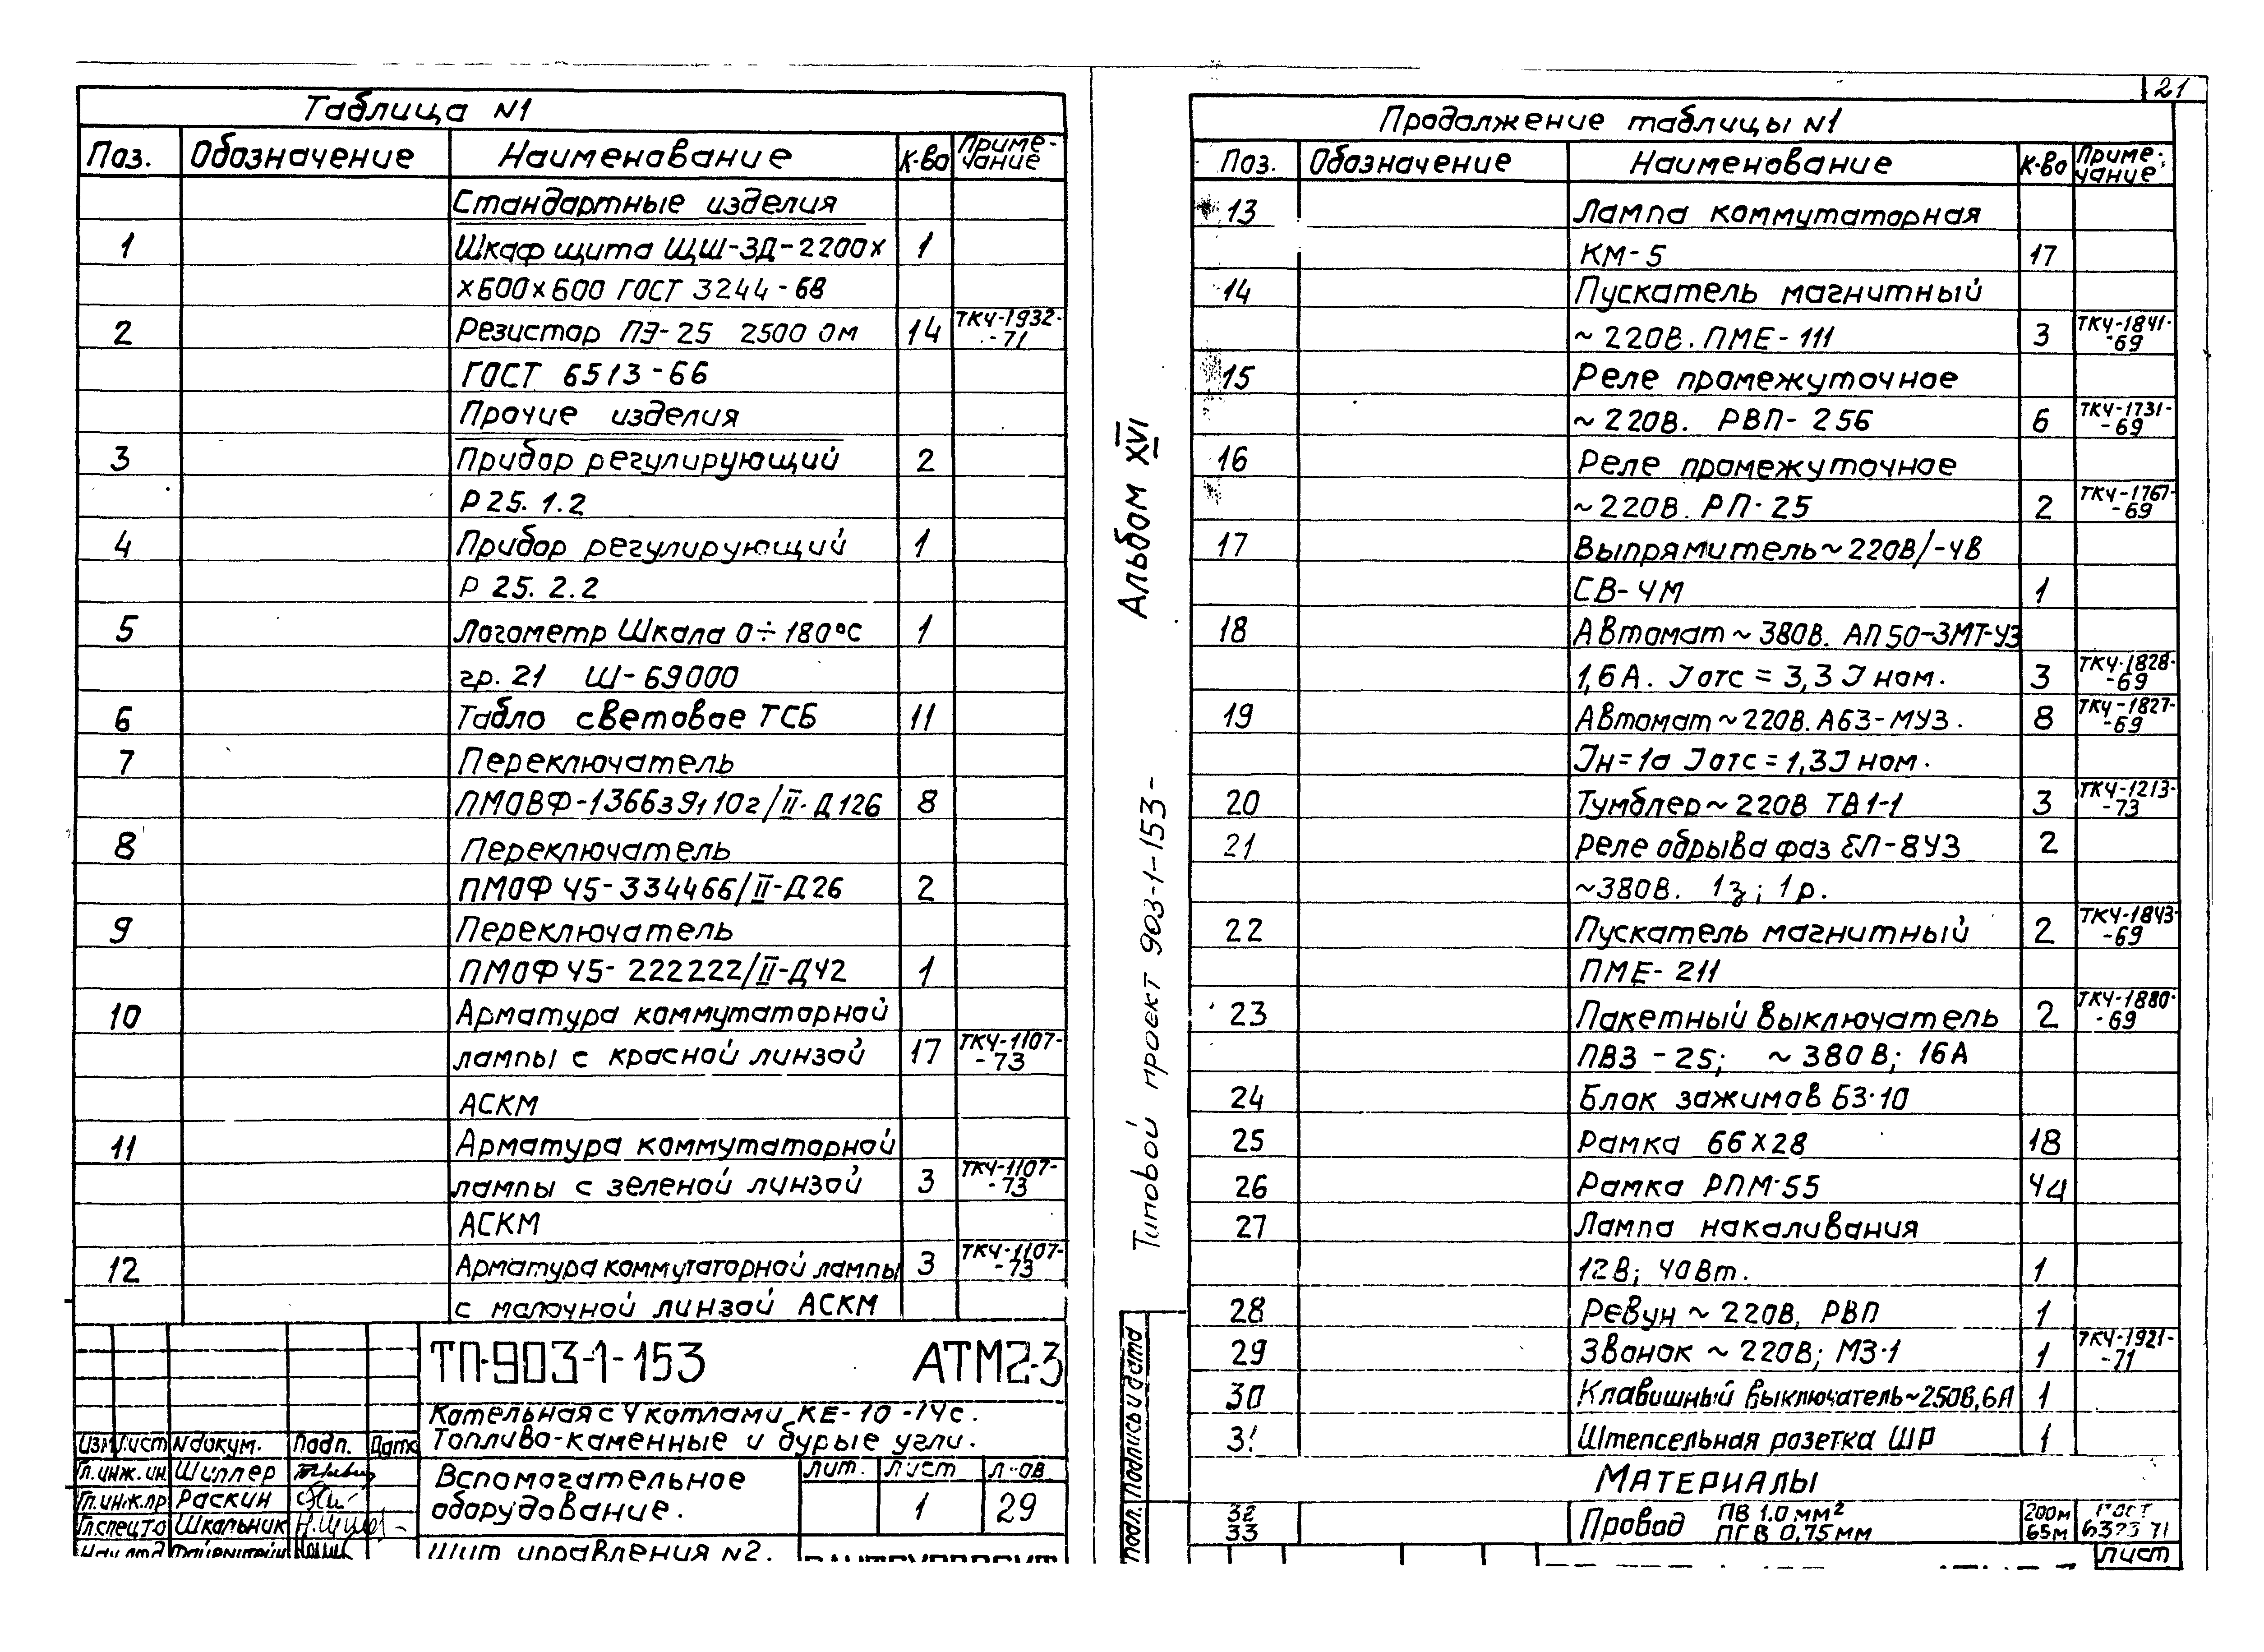 21
Таблица №1
Поз. Обозначение Наименование К-во Примечание
Стандартные изделия
1 Шкаф щита ЩШ-ЗД-2200х 1
х600х600 ГОСТ 3244-68
2 Резистор ПЭ-25 2500 Ом 14 ТКЧ-1932-71
ГОСТ 6513-66
Прочие изделия
3 Прибор регулирующий 2
Р 25.1.2
4 Прибор регулирующий 1
Р 25.2.2
5 Логометр Шкала 0÷180°С 1
гр. 21 Ш-69000
6 Табло световое ТСБ 11
7 Переключатель
ПМОВФ-1366з9110г/II-Д126 8
8 Переключатель
ПМОФ 45-334466/II-Д26 2
9 Переключатель
ПМОФ 45-222222/II-Д42 1
10 Арматура коммутаторной
лампы с красной линзой 17 ТКЧ-1107-73
АСКМ
11 Арматура коммутаторной
лампы с зеленой линзой 3 ТКЧ-1107-73
АСКМ
12 Арматура коммутаторной лампы 3 ТКЧ-1107-73
с молочной линзой АСКМ
ТП-903-1-153 АТМ2-3
Котельная с 4 котлами КЕ-10-14с.
Топливо-каменные и бурые угли.
Изм Лист N докум. Подп. Дата
Гл. инж. ин Шиллер
Гл. инж. пр Раскин
Гл. спец ТО Школьник
Вспомогательное
оборудование.
Лит. Лист Л-ов
1 29
Щит управления №2.
Альбом XVI
Типовой проект 903-1-153-
Подпись и дата
Подл.
Продолжение таблицы №1
Поз. Обозначение Наименование К-во Примечание
13 Лампа коммутаторная
КМ-5 17
14 Пускатель магнитный
~220В. ПМЕ-111 3 ТКЧ-1841-69
15 Реле промежуточное
~220В. РВП-256 6 ТКЧ-1731-69
16 Реле промежуточное
~220В. РП-25 2 ТКЧ-1767-69
17 Выпрямитель ~220В/-4В
СВ-4М 1
18 Автомат ~380В. АП50-3МТ-У3
1,6А. Iотс = 3,3 Iном. 3 ТКЧ-1828-69
19 Автомат ~220В. А63-МУ3. 8 ТКЧ-1827-69
Iн=1а Iотс=1,3Iном.
20 Тумблер ~220В ТВ1-1 3 ТКЧ-1213-73
21 Реле обрыва фаз ЕЛ-8У3 2
~380В. 1з; 1р.
22 Пускатель магнитный 2 ТКЧ-1843-69
ПМЕ-211
23 Пакетный выключатель 2 ТКЧ-1880-69
ПВ3-25; ~380В; 16А
24 Блок зажимов БЗ-10
25 Рамка 66х28 18
26 Рамка РПМ-55 44
27 Лампа накаливания
12В; 40Вт. 1
28 Ревун ~220В, РВП 1
29 Звонок ~220В; МЗ-1 1 ТКЧ-1921-71
30 Клавишный выключатель ~250В, 6А 1
31 Штепсельная розетка ШР 1
Материалы
32 Провод ПВ 1.0 мм² 200м
33 ПГВ 0,75мм 65м
Лист